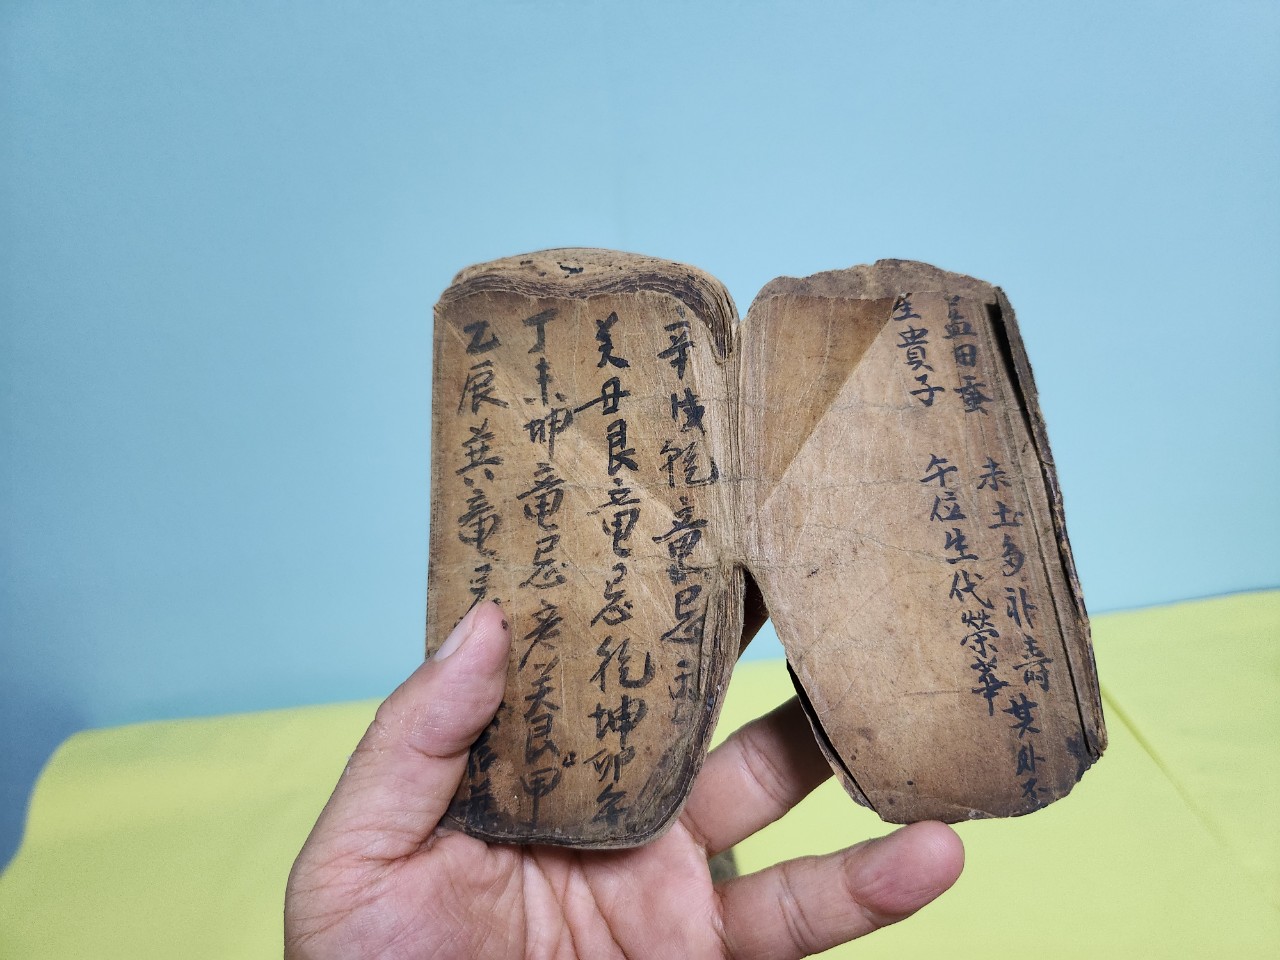 益田蚕 未土多补壽其外不
生貴子 午位生代榮華
辛戌乾竜忌
癸丑艮竜忌乾坤卯午
丁未坤竜忌亥癸艮甲
乙辰巽竜